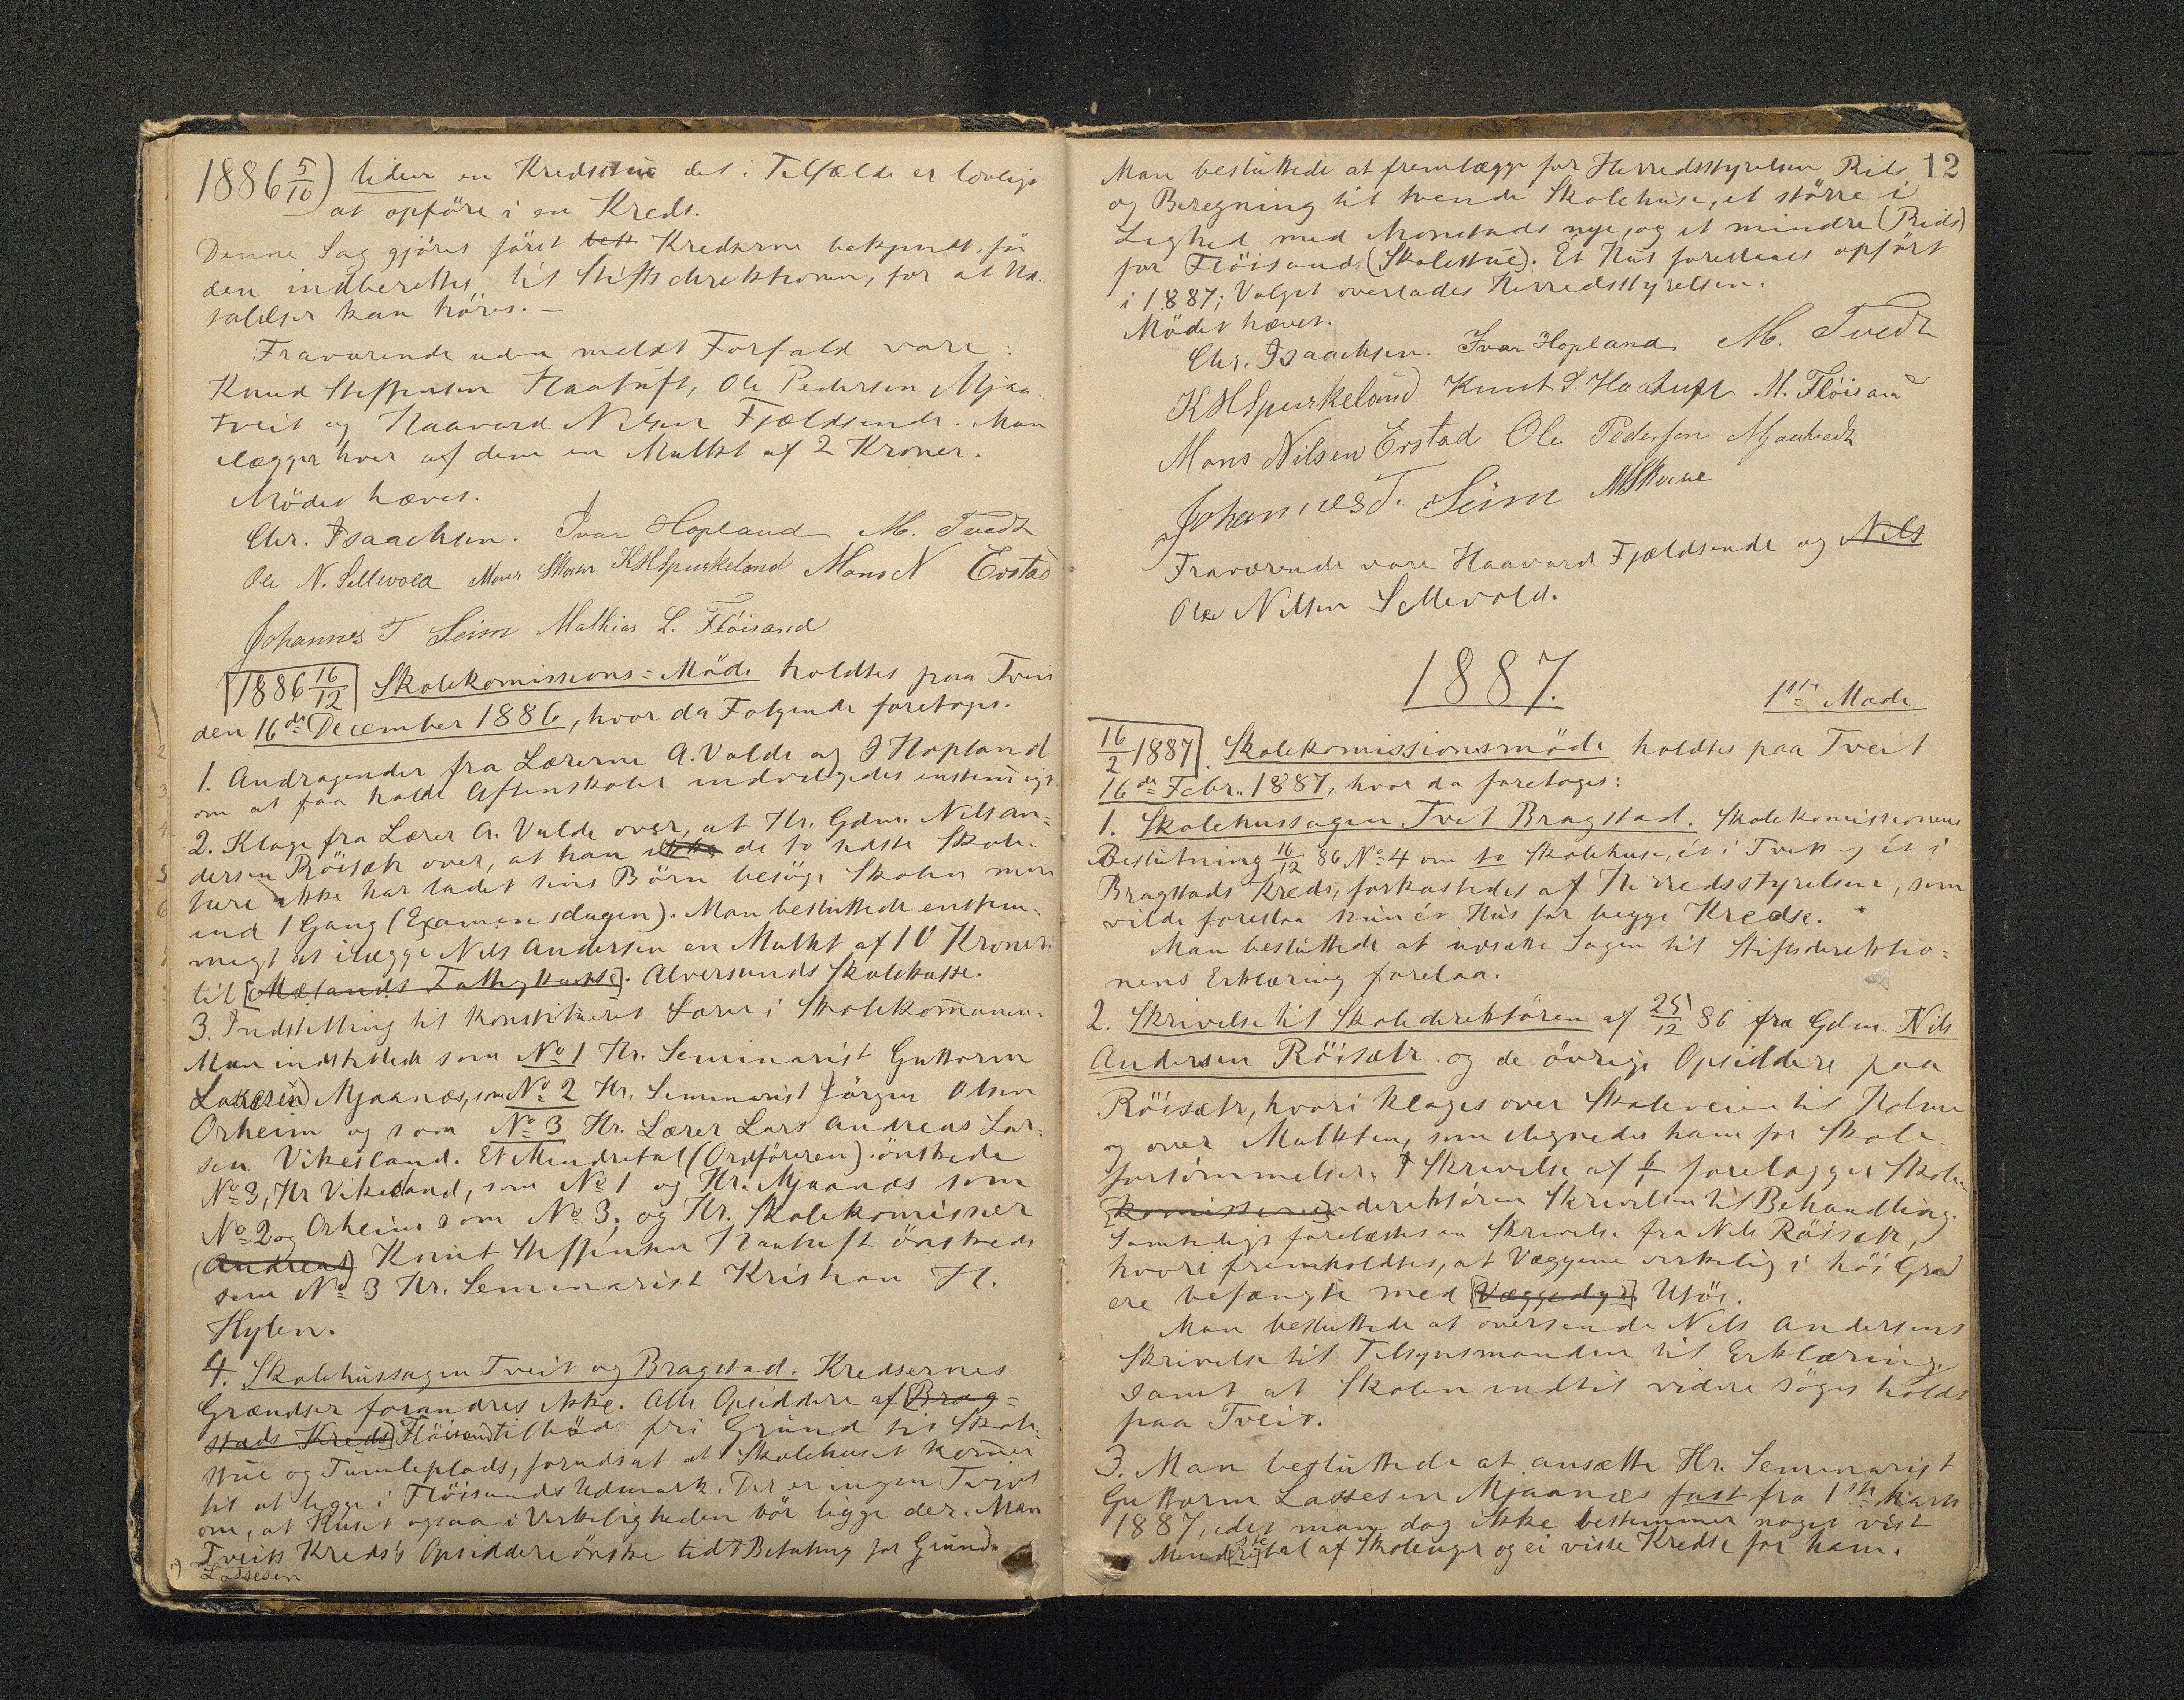 1886 5/10) liden en Kredsstue det i Tilfælde er lovligt
at opføre i en Kreds.
Denne Sag gjöres först bek Kredserne bekjendt, för
den indberettes til Stiftsdirektionen, for at Ud-
talelser kan höres. —
Fraværende uden meldt Forfald vare:
Knud Steffensen Haatuft, Ole Pedersen Mjaa-
tveit og Haavard Nilsen Fjældsende. Man
ilægger hver af dem en Mulkt af 2 Kroner.
Mödet hævet.
Chr. Isaachsen. Ivar Hopland M. Tvedt
Ole N. Sellevold Mons Skorve KHSpurkeland Mons N Evstad
Johannes T Seim Mathias L. Flöisand
1886 16/12 Skolekomissions=Möde holdtes paa Tveit
den 16de December 1886, hvor da Følgende foretoges.
1. Andragender fra Lærerne A. Valde og I Hopland
om at faa holde Aftenskoler indvilgedes enstemigt
2. Klage fra Lærer A. Valde over, at Hr. Gdm. Nils An=
dersen Röisætr over, at han ikke de to sidste Skole-
here ikke har ladet sine Børn besøge Skolen mere
end 1 Gang (Examensdagen). Man besluttede enstem-
migt at ilægge Nils Andersen en Mulkt af 10 Kroner
til [Mælands Fattigkasse]. Alversunds Skolekasse.
3. Indstilling til konstitueret Lærer i Skolekomunen.
Man indstillede som No 1 Hr. Seminarist Guttorm
Lassesen) Mjaanæs, som No 2 Hr. Seminarist Jörgen Olsen
Orheim og som No 3 Hr. Lærer Lars Andreas Lar=
sen Vikesland. Et Mindretal (Ordföreren) önskede
No 3, Hr Vikesland, som No 1 og Hr. Mjaanæs som
No 2 og Orheim som No 3, og Hr. Skolekomissær
(Andreas) Knut Steffensen Haatuft önskede
som No 3 Hr. Seminarist Kristian H.
Hylen.
4. Skolehussagen Tveit og Bragstad. Kredsernes
Grændser forandres ikke. Alle Opsiddere af [Brag=
stads Kreds] Flöisand tilböd fri Grund til Skole-
stue og Tumleplads, forudsat at Skolehuset komer
til at ligge i Flöisands Udmark. Der er ingen Tvivl
om, at Huset ogsaa i Virkeligheden bör ligge der. Men
Tveits Kreds's Opsiddere önske lidt Betaling for Grund.
Lassesen
12
Man besluttede at fremlægge for Herredsstyrelsen Rids
og Beregning til tvende Skolehuse, et större i
Lighed med Monstads nye, og et mindre (Rids)
for Flöisand (Skolestue). Ét Hus forestaaes opfört
i 1887; Valget overlades Herredsstyrelsen.
Mödet hævet.
Chr. Isaachsen. Ivar Hopland M. Tvedt
KHSpurkeland Knut S. Haatuft M. Flöisand
Mons Nilsen Evstad Ole Pedersen Mjaatvedt
Johannes T. Seim MSkorve
Fraværende vare Haavard Fjældsende og Nils
Ole Nilsen Sellevold.
1887.
1ste Mode
16/2 1887. Skolekomissionsmöde holdtes paa Tveit
16de Febr. 1887, hvor da foretoges:
1. Skolehussagen Tveit Bragstad. Skolekomissionens
Beslutning 16/12 86 No 4 om to Skolehuse, ét i Tveit og ét i
Bragstads Kreds, forkastedes af Herredsstyrelsen, som
vilde forestaa kun ét Hus for begge Kredse.
Man besluttede at udsætte Sagen til Stiftsdirektio=
nens Erklæring forelaa.
2. Skrivelse til Skoledirektören af 25/12 86 fra Gdm. Nils
Andersen Röisætr og de övrige Opsiddere paa
Röisætr, hvori klages over Skoleveien til Holme
og over Mulkten, som ilegnedes ham for Skole-
forsömmelser. I Skrivelse af 6/1 forelægger Skole-
[komissionen] direktören Skrivelsen til Behandling.
Samtidigt forelæstes en Skrivelse fra Nils Röisætr,
hvori fremholdtes, at Væggene virkelig i höi Grad
ere befængte med [Væggedyr]. Utöi.
Man besluttede at oversende Nils Andersens
Skrivelse til Tilsynsmanden til Erklæring
samt at Skolen indtil videre söges holdt
paa Tveit.
3. Man besluttede at ansætte Hr. Seminarist
Guttorm Lassesen Mjaanæs fast fra 1ste Marts
1887, idet man dog ikke bestemmer noget vist
Mind[re]stetal af Skoleuger og ei visse Kredse for ham.